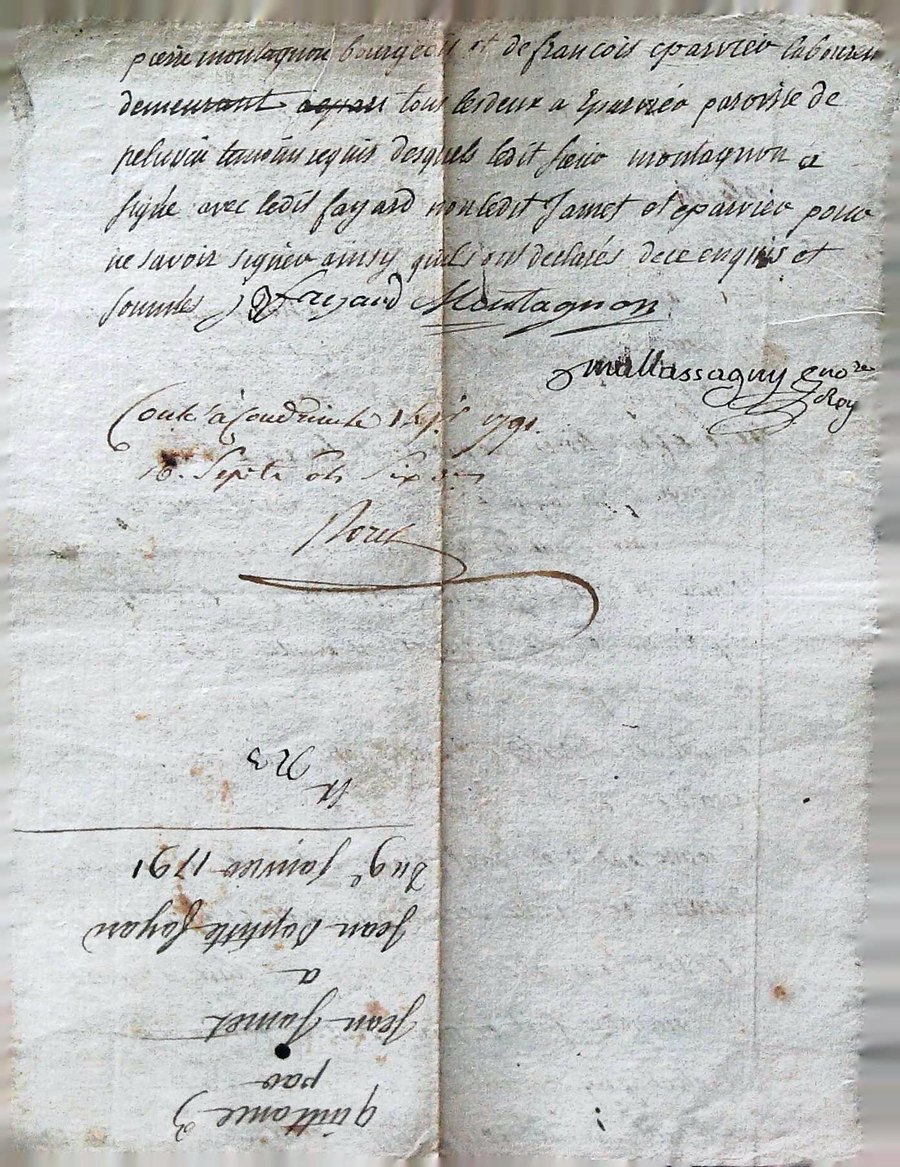 pierre montagnon bourgeois et de francois eparvier laboureur
demeurant tous lesdeux a Eparvier paroisse de
pelussin temoins requis desquels ledit sieur montagnon a
signé avec ledit fayard non ledit Jamet et eparvier pour
ne savoir signer ainsy quils ont declarés de ce enquis et
sommés J B fayard Montagnon
mallassagny no.re
Roy
Conlé a Condrieu le 1791
18. Sept
quittance
par
Jean Jamet
a
Jean Baptiste fayard
du 9e janvier 1791
N 23